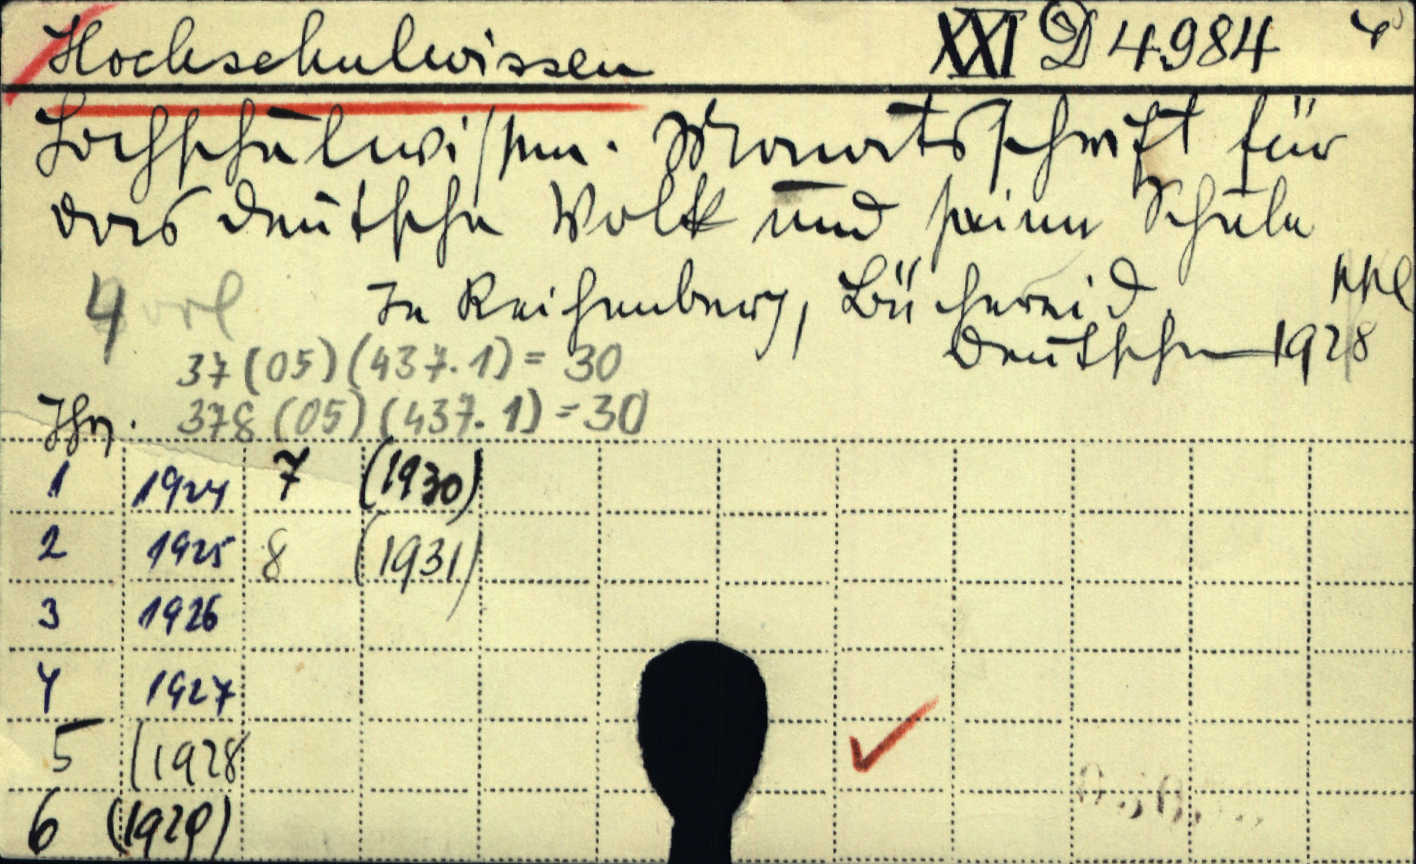 Hochschulwissen XXI D 4984
Hochschulwissen. Monatsschrift für
das deutsche Volk und seine Schule
4 In Reichenberg, Bücherei d.
Deutschen 1928
37(05)(437.1)=30
Jhg. 378(05)(437.1)=30
1 1924 7 (1930)
2 1925 8 (1931)
3 1926
4 1927
5 (1928
6 (1929)